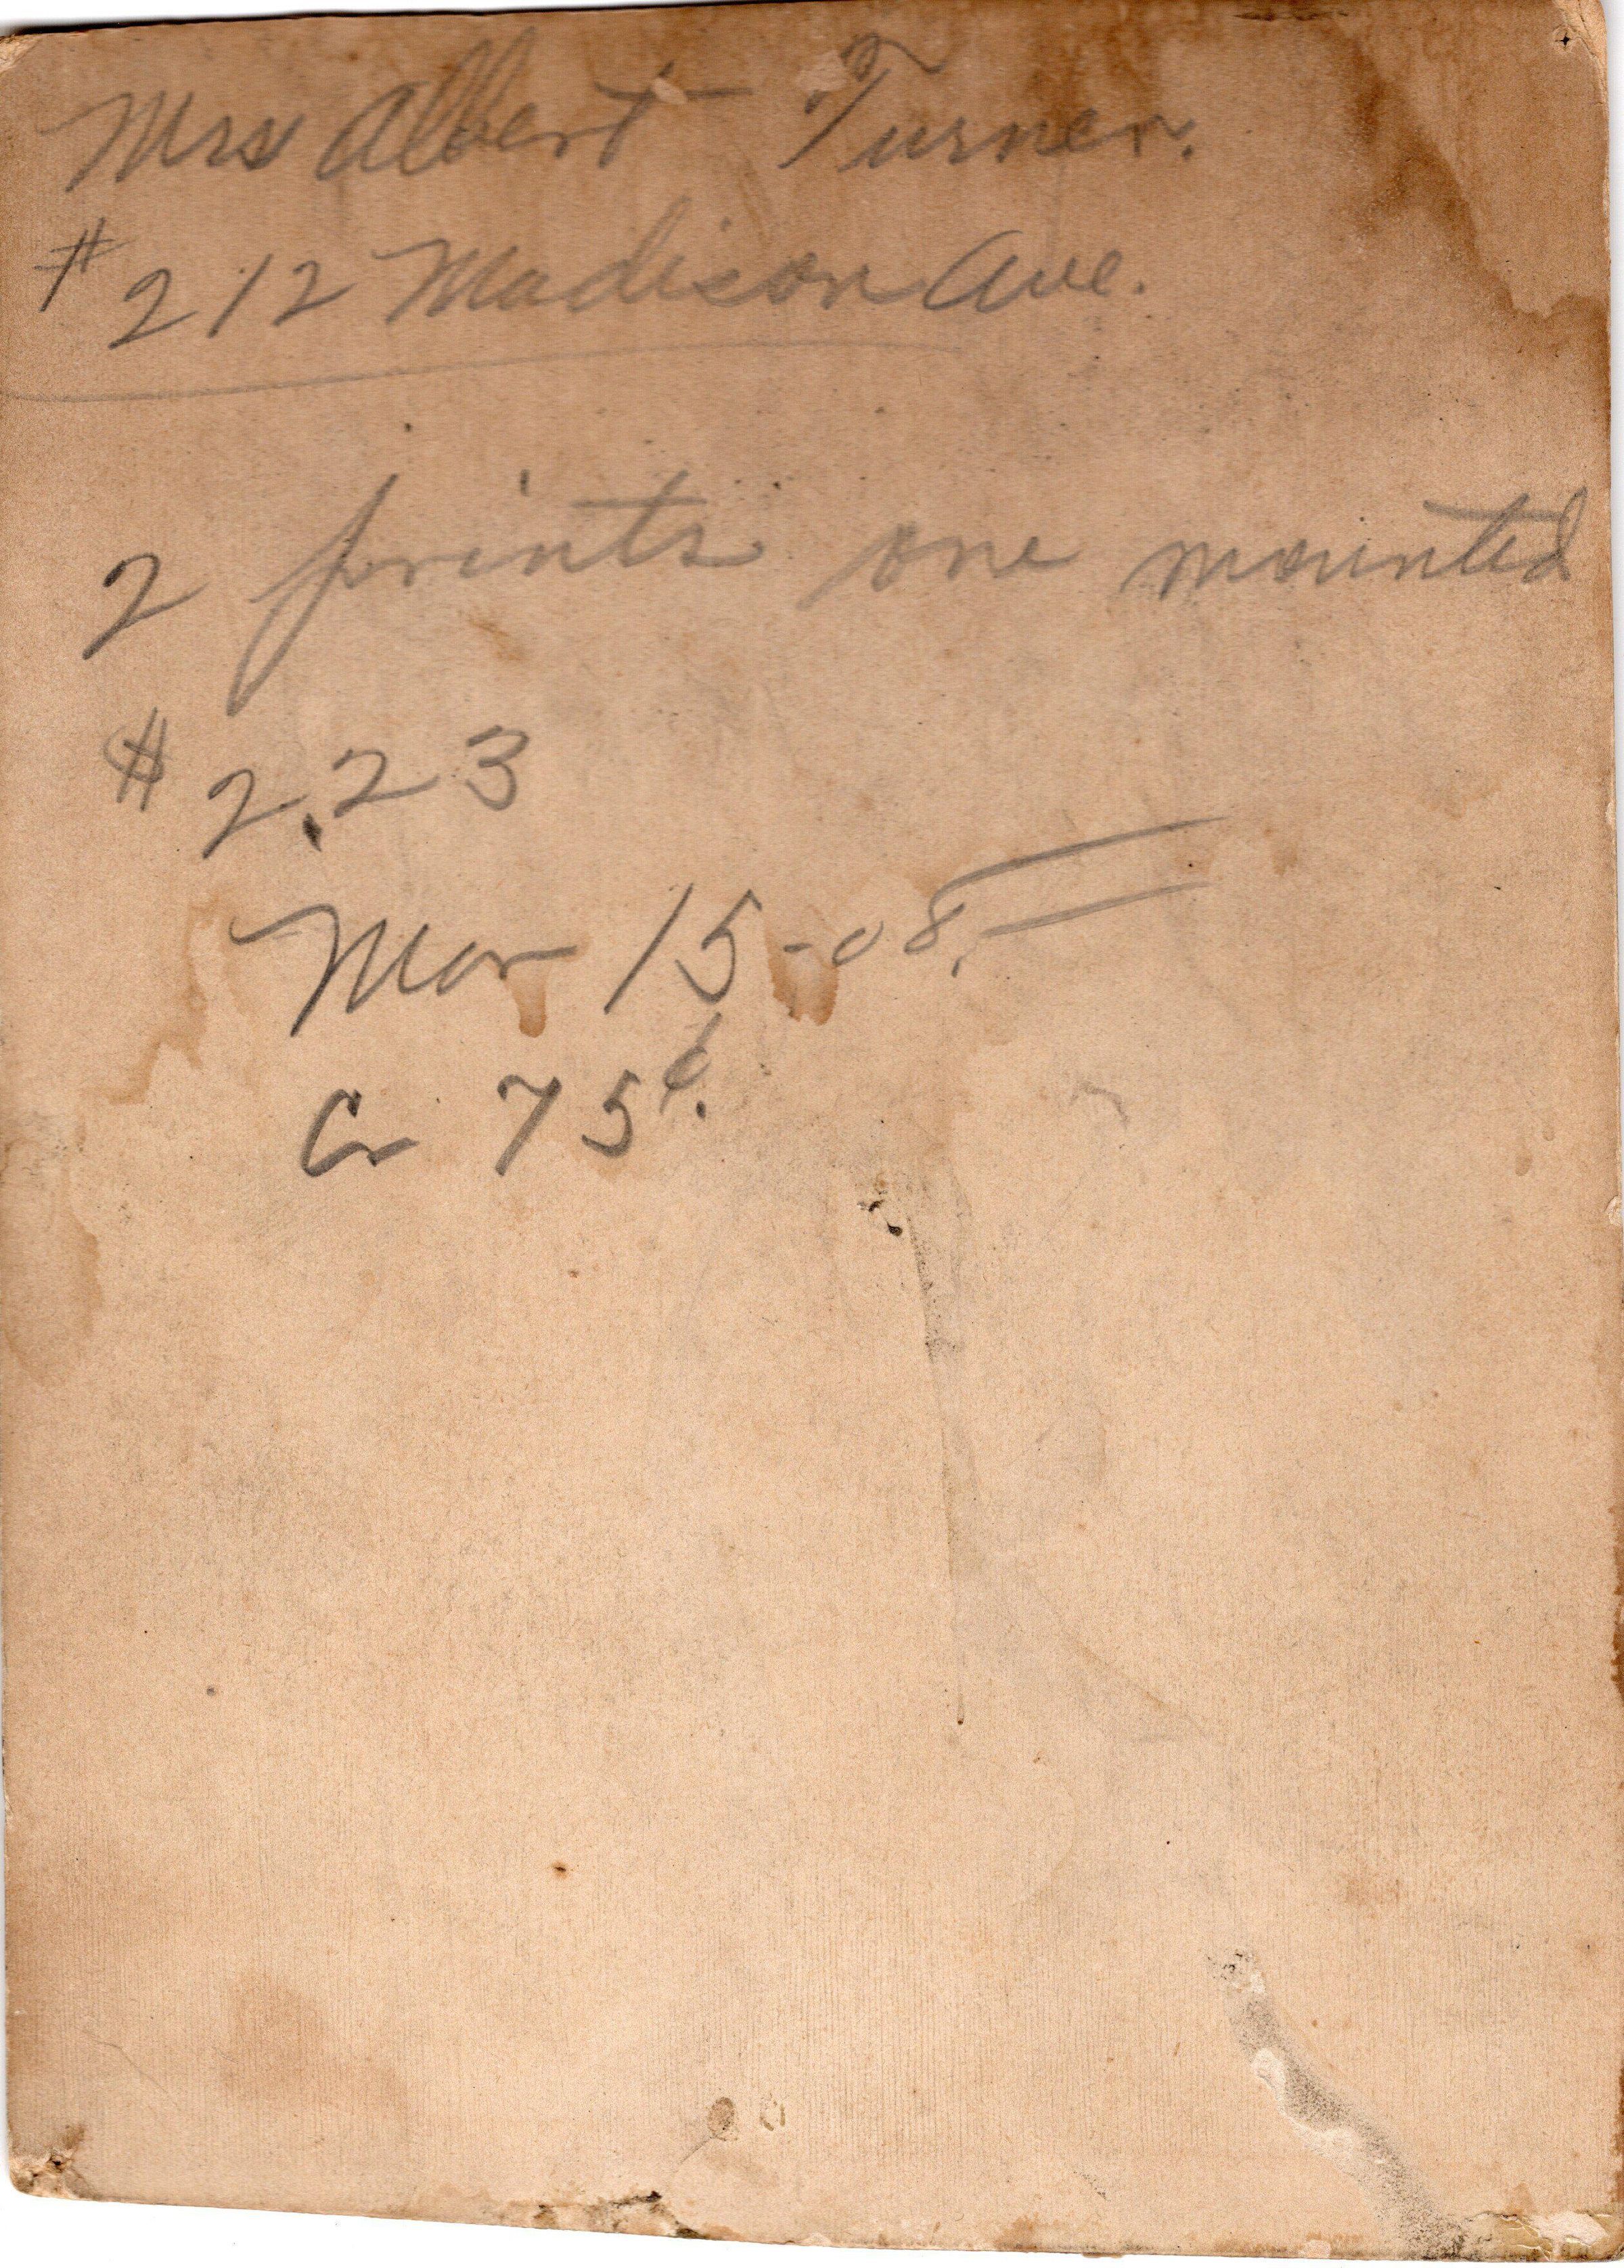 Mrs Albert Turner.
#212 Madison Ave.
2 prints one mounted
$2.23
Mar 15-08.
Cr 75¢.